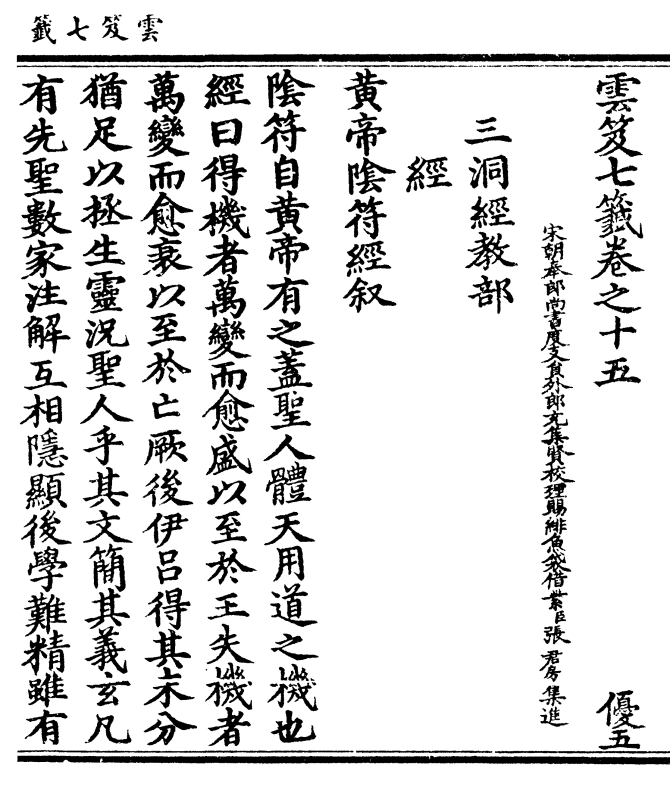 雲笈七籤
雲笈七籤卷之十五
優五
宋朝奉郎尚書度支員外郎充集賢校理賜緋魚袋借紫臣張君房集進
三洞經教部
經
黃帝陰符經叙
陰符自黃帝有之蓋聖人體天用道之機也
經曰得機者萬變而愈盛以至於王失機者
萬變而愈衰以至於亡厥後伊呂得其末分
猶足以拯生靈況聖人乎其文簡其義玄凡
有先聖數家注解互相隱顯後學難精雖有